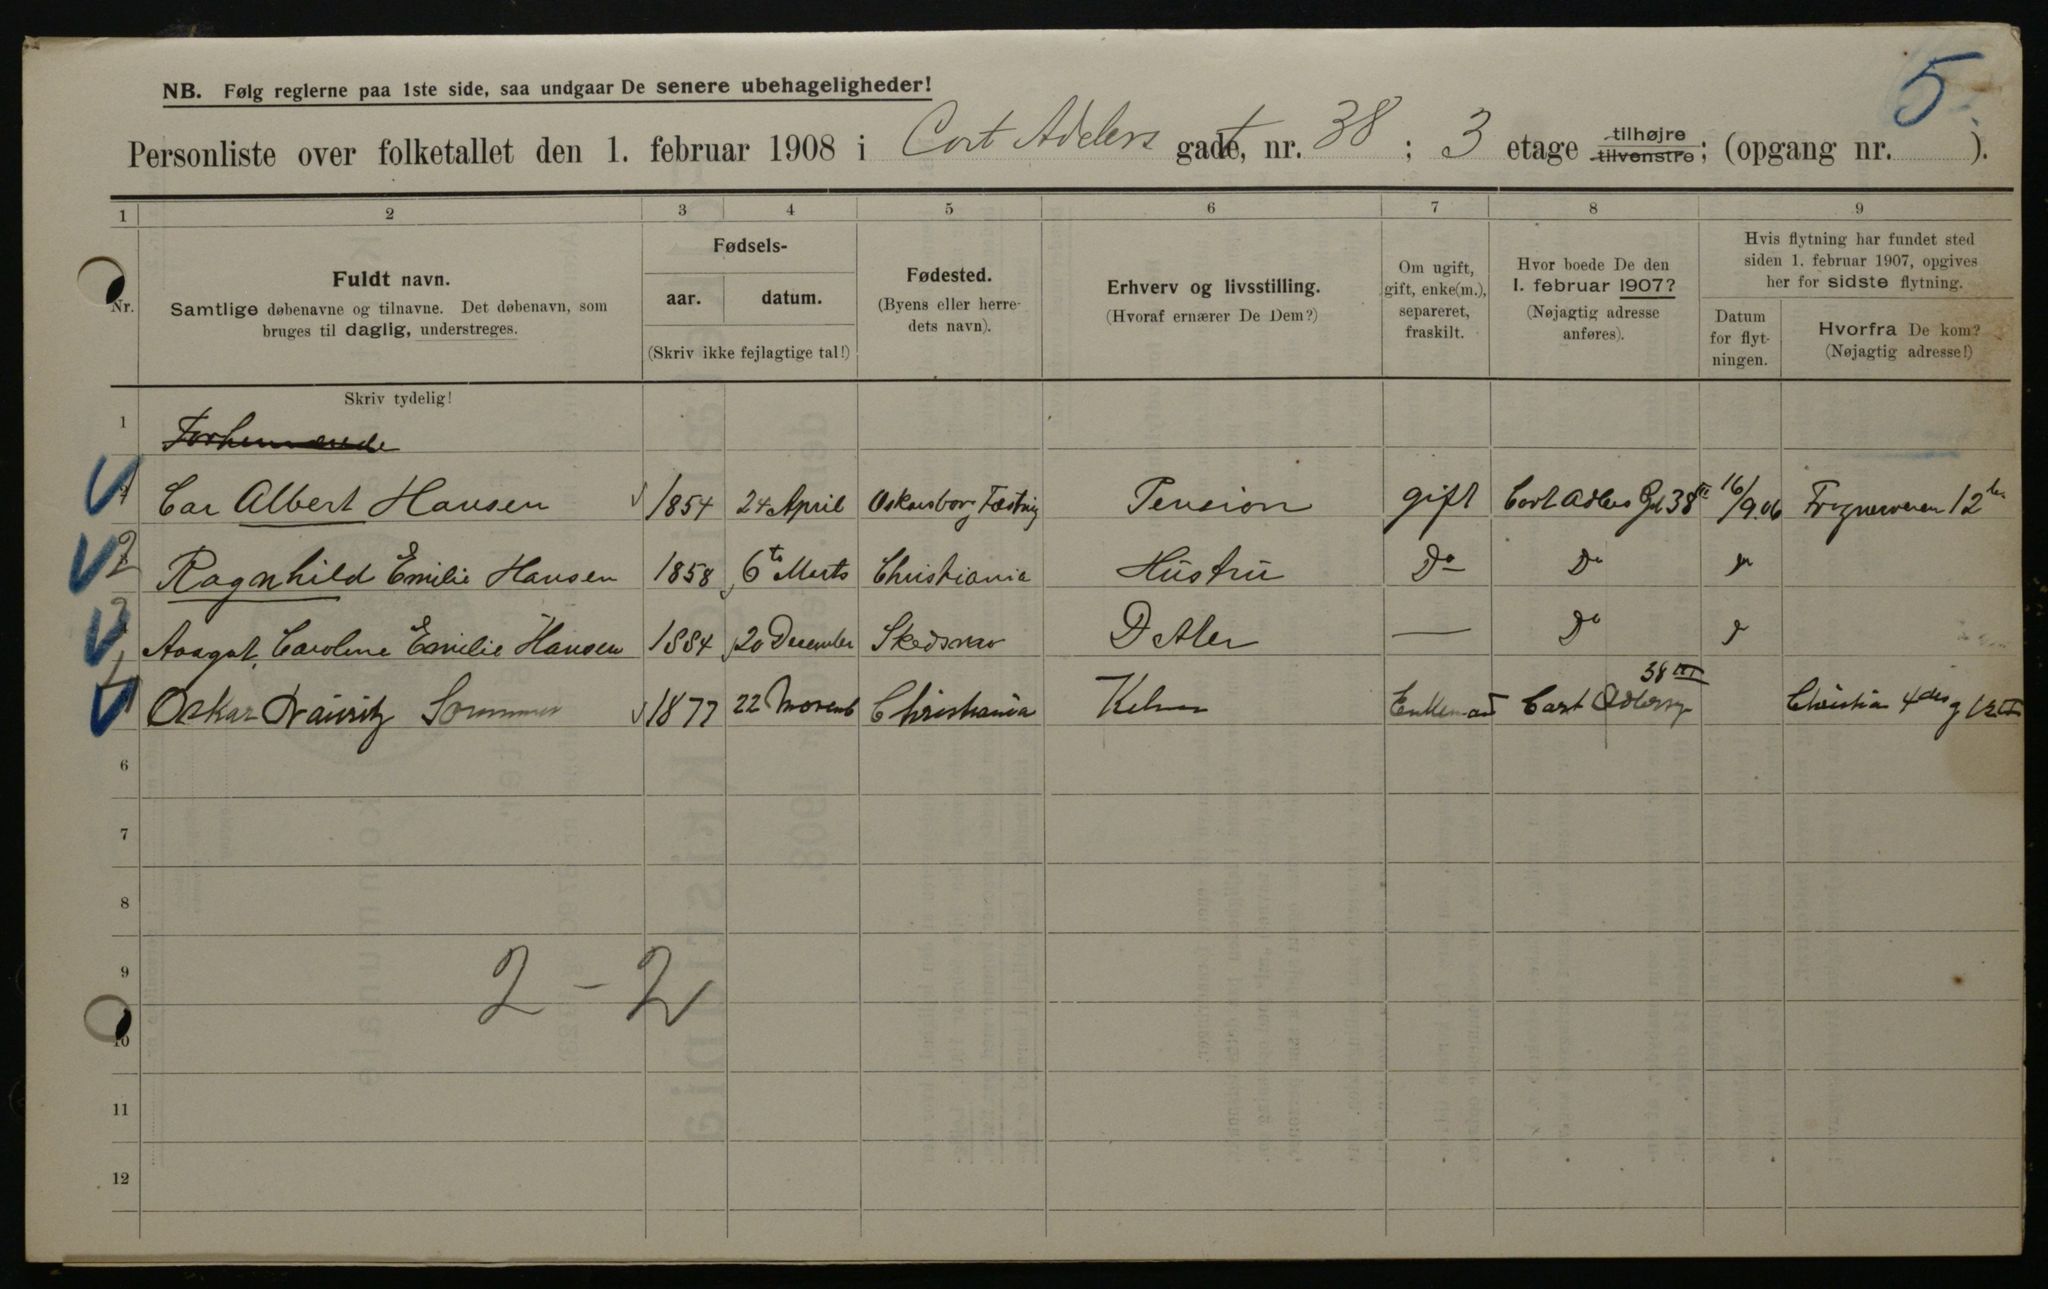 5.
NB. Følg reglerne paa 1ste side, saa undgaar De senere ubehageligheder!
Personliste over folketallet den 1. februar 1908 i Cort Adelers gade, nr. 38 ; 3 etage tilhøjre tilvenstre; (opgang nr. ).
1 2 3 4 5 6 7 8 9
Nr.
Fuldt navn.
Samtlige døbenavne og tilnavne. Det døbenavn, som
bruges til daglig, understreges.
Fødsels-
aar. datum.
(Skriv ikke fejlagtige tal!)
Fødested.
(Byens eller herre-
dets navn).
Erhverv og livsstilling.
(Hvoraf ernærer De Dem?)
Om ugift,
gift, enke(m.),
separeret,
fraskilt.
Hvor boede De den
1. februar 1907?
(Nøjagtig adresse
anføres).
Hvis flytning har fundet sted
siden 1. februar 1907, opgives
her for sidste flytning.
Datum
for flyt-
ningen.
Hvorfra De kom?
(Nøjagtig adresse!)
Skriv tydelig!
1
Car Albert Hansen 1854 24 April Oskarsborg Pension gift Cort Adlers Gd 38 III 16/9.06 12
2 Ragnhild Emilie Hansen 1858 6te Marts Christiania Hustru Do Do
3 Caroline Emilie Hansen 1884 20 December Datter — Do
Oskar 1877 22 Novemb Christiania Enkemand Cort 38 III
6
7
8
9
2 - 2
10
11
12